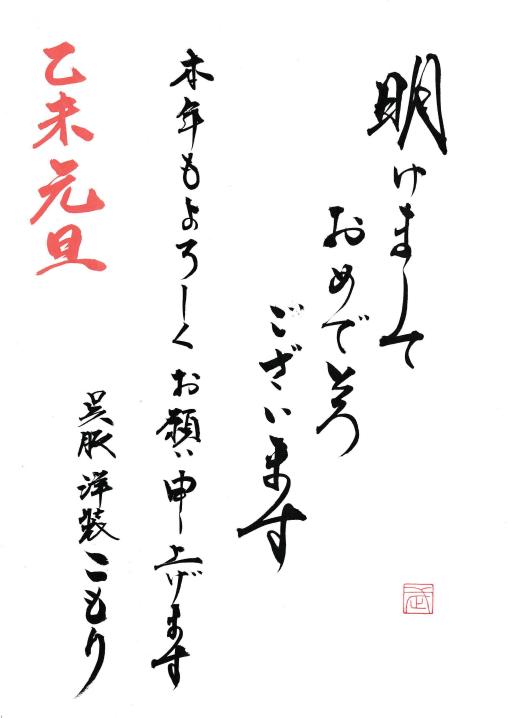 明けまして
おめでとう
ございます
本年もよろしくお願い申し上げます
乙未元旦
呉服洋装こもり